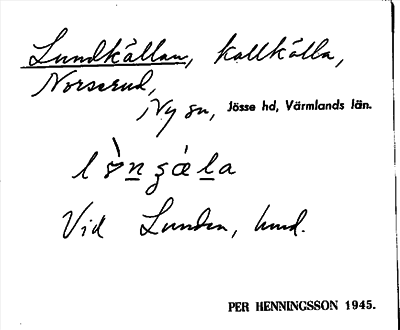 Lundkällan, kallkälla,
Norserud,
Ny sn, Jösse hd, Värmlands län.
Vid Lunden, lund.
PER HENNINGSSON 1945.